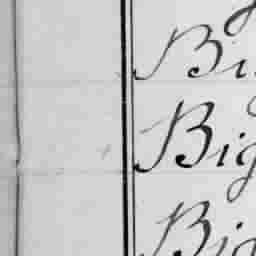 Bi
Big
Big